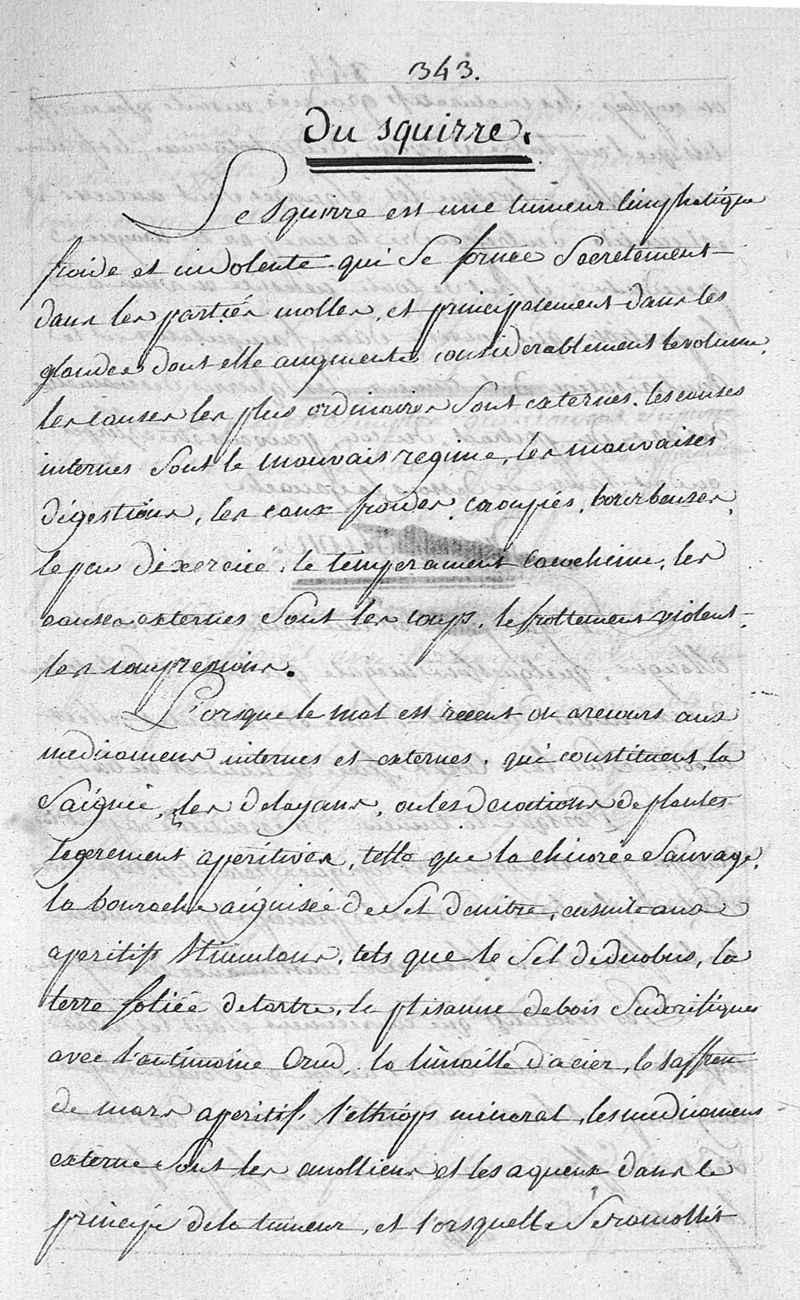 343.
Du squirre.
Le squirre est une tumeur limphatique
froide et indolente qui se forme secretement
dans les partiés molles, et principalement dans les
glandes dont elle augmente considerablement le volume,
les causes les plus ordinaires sont externes. les causes
internes sont le mauvais regime, les mauvaises
digestions, les eaux froides, croupiés, bourbeuses,
le peu d'exercice, le temperament cacochime, les
causes externes sont les coups, le frottement violent,
les compressions.
Lorsque le mal est recent on a recours aux
medicamens internes et externes, qui constituent la
saignée, les delayans, ou les decoctions de plantes
legerement aperitives, telle que la chicorée sauvage,
la bourache aiguisée de sel de nitre, ensuite aux
aperitifs stimulans, tels que le sel de duobus, la
terre foliée de tartre, la ptisanne de bois sudorifiques
avec l'antimoine crud, la limaille d'acier, le saffren
de mars aperitif, l'ethiops mineral, les medicamens
externe sont les emolliens et les aqueux dans le
principe de la tumeur, et lorsquelle se ramollit